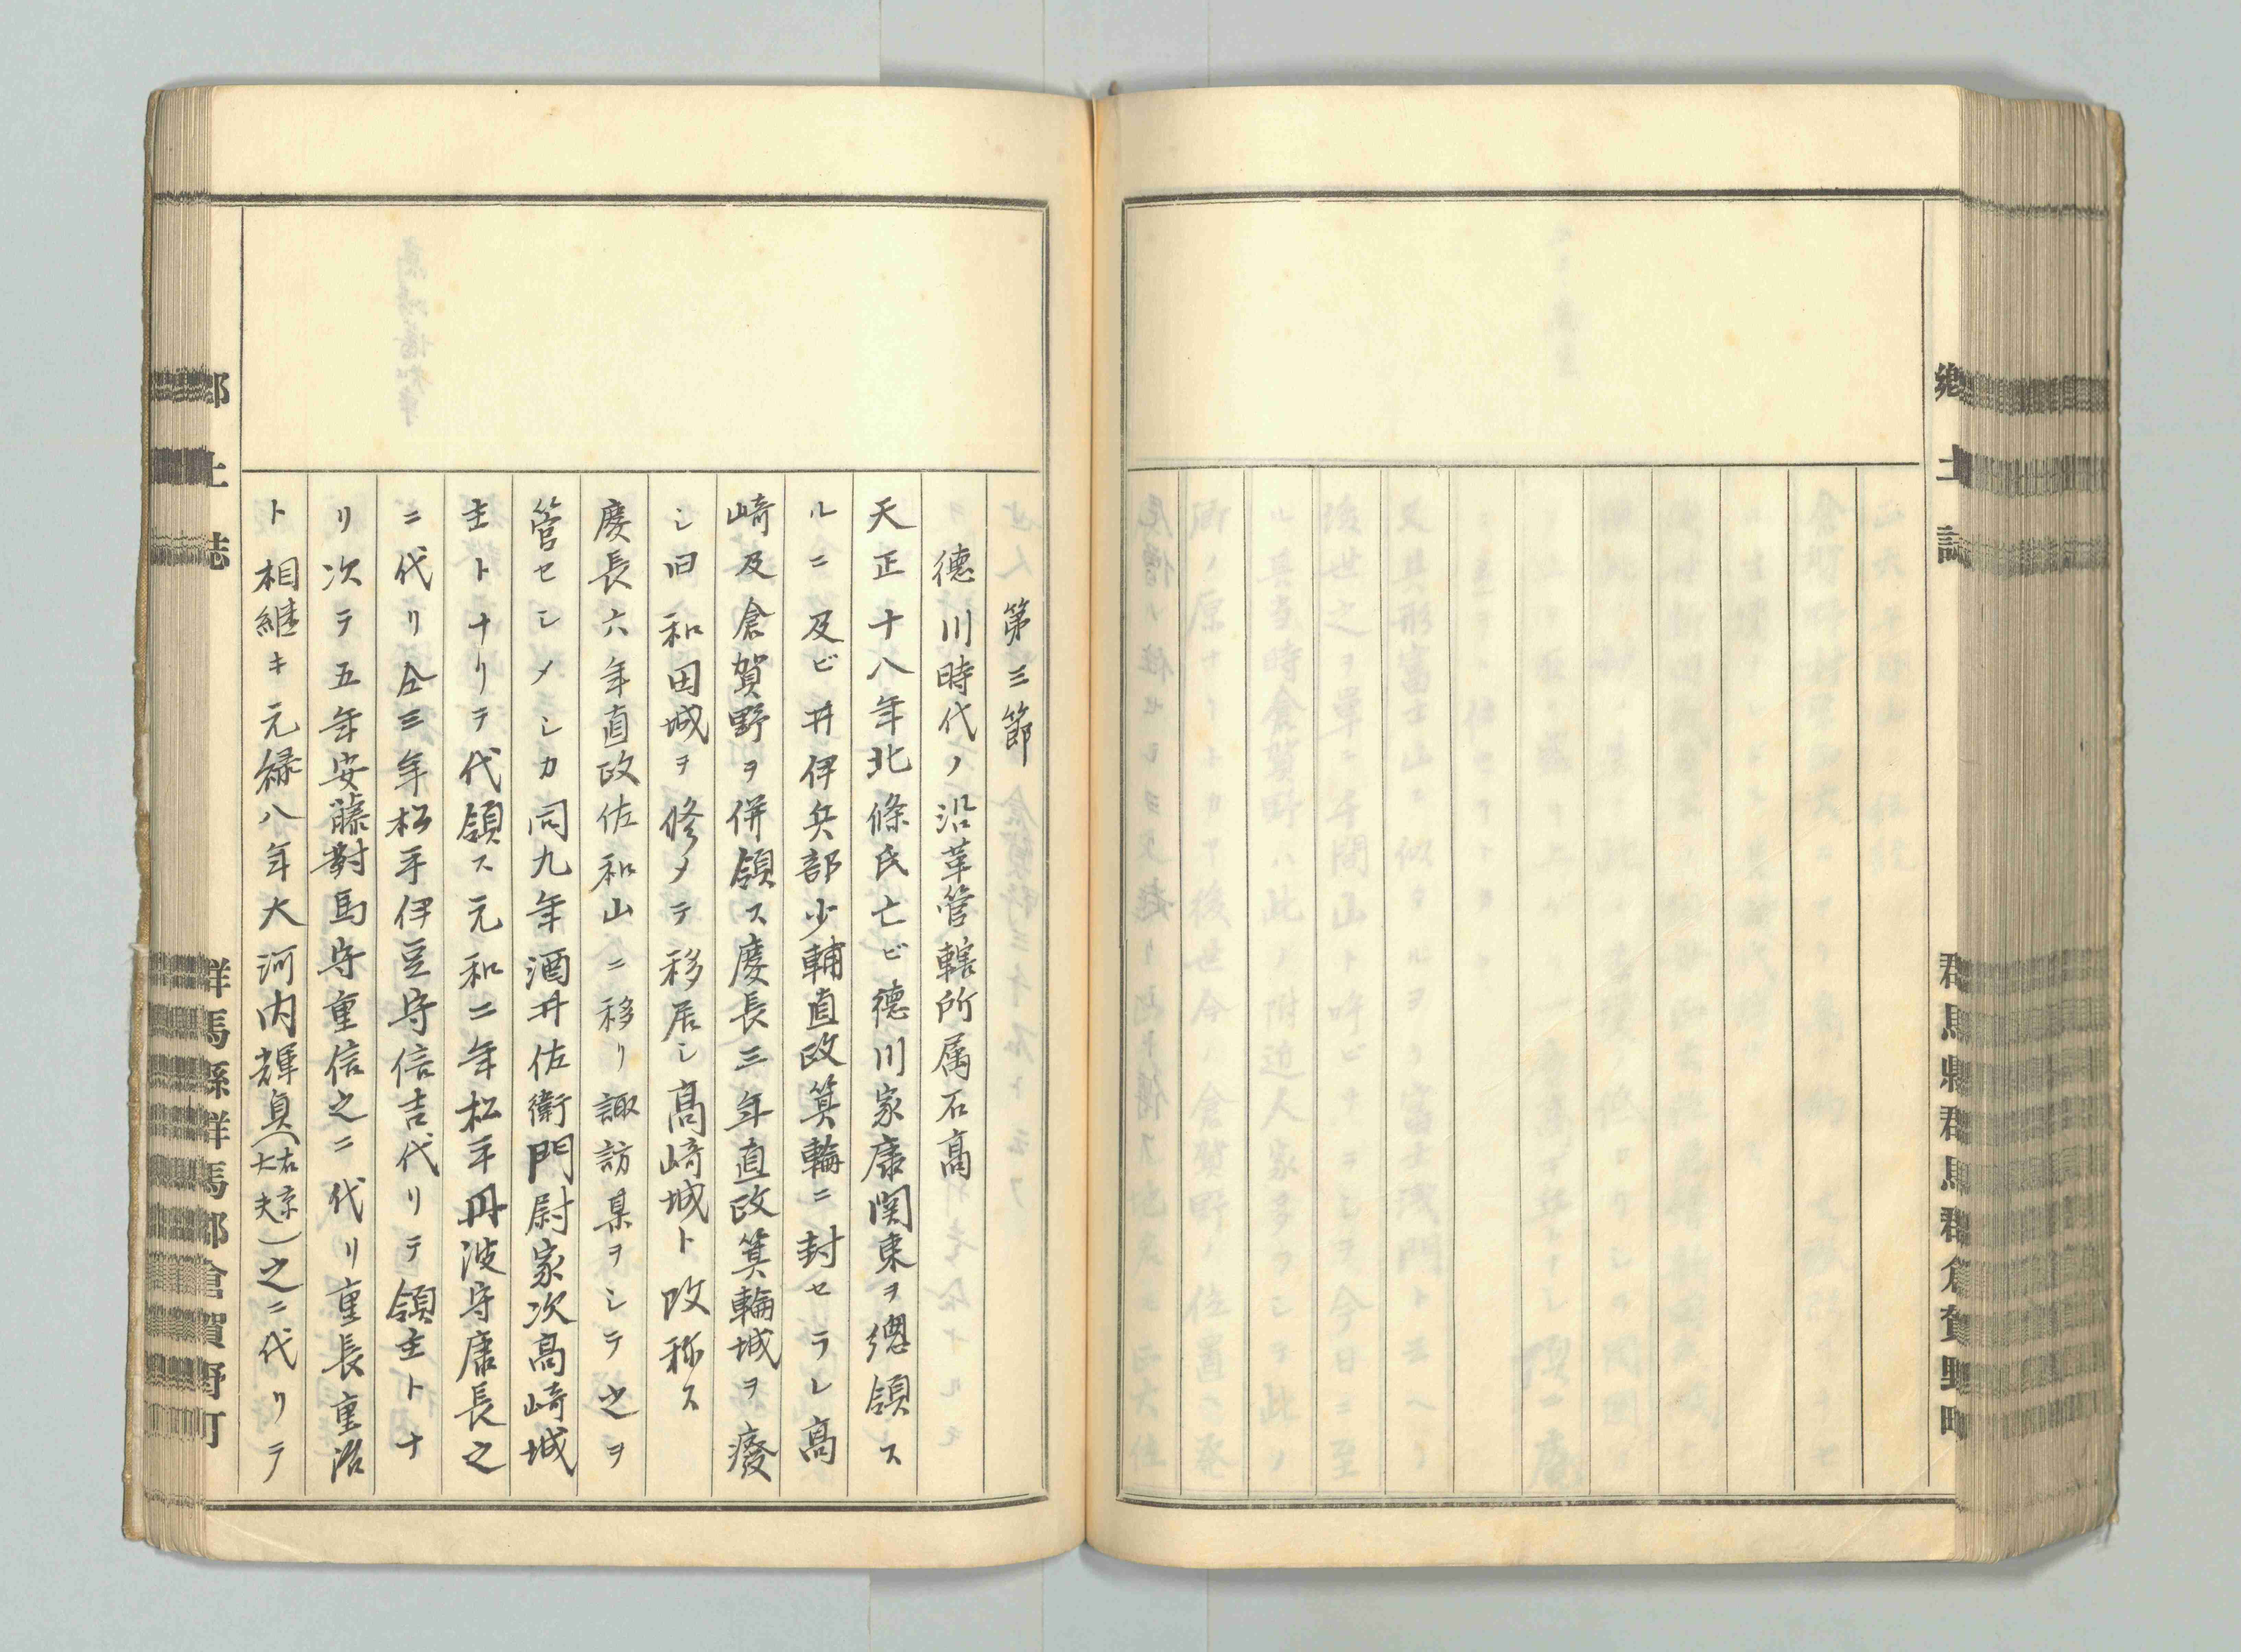 鄕土誌
群馬縣群馬郡倉賀野町
第三節
德川時代ノ沿革管轄所属石髙
天正十八年北條氏亡ビ德川家康関東ヲ總領ス
ルニ及ビ井伊兵部少輔直政箕輪ニ封セラレ髙
崎及倉賀野ヲ併領ス慶長三年直政箕輪城ヲ癈
シ旧和田城ヲ修メテ移居シ髙崎城ト改称ス
慶長六年直政佐和山ニ移リ諏訪某ヲシテ之ヲ
管セシメシカ同九年酒井佐衛門尉家次髙崎城
主トナリテ代領ス元和二年松平丹波守康長之
ニ代リ仝三年松平伊豆守信吉代リテ領主トナ
リ次テ五年安藤對馬守重信之ニ代リ重長重治
ト相継キ元禄八年大河内輝貞(右京大夫)之ニ代リテ
郷土誌
群馬縣群馬郡倉賀野町